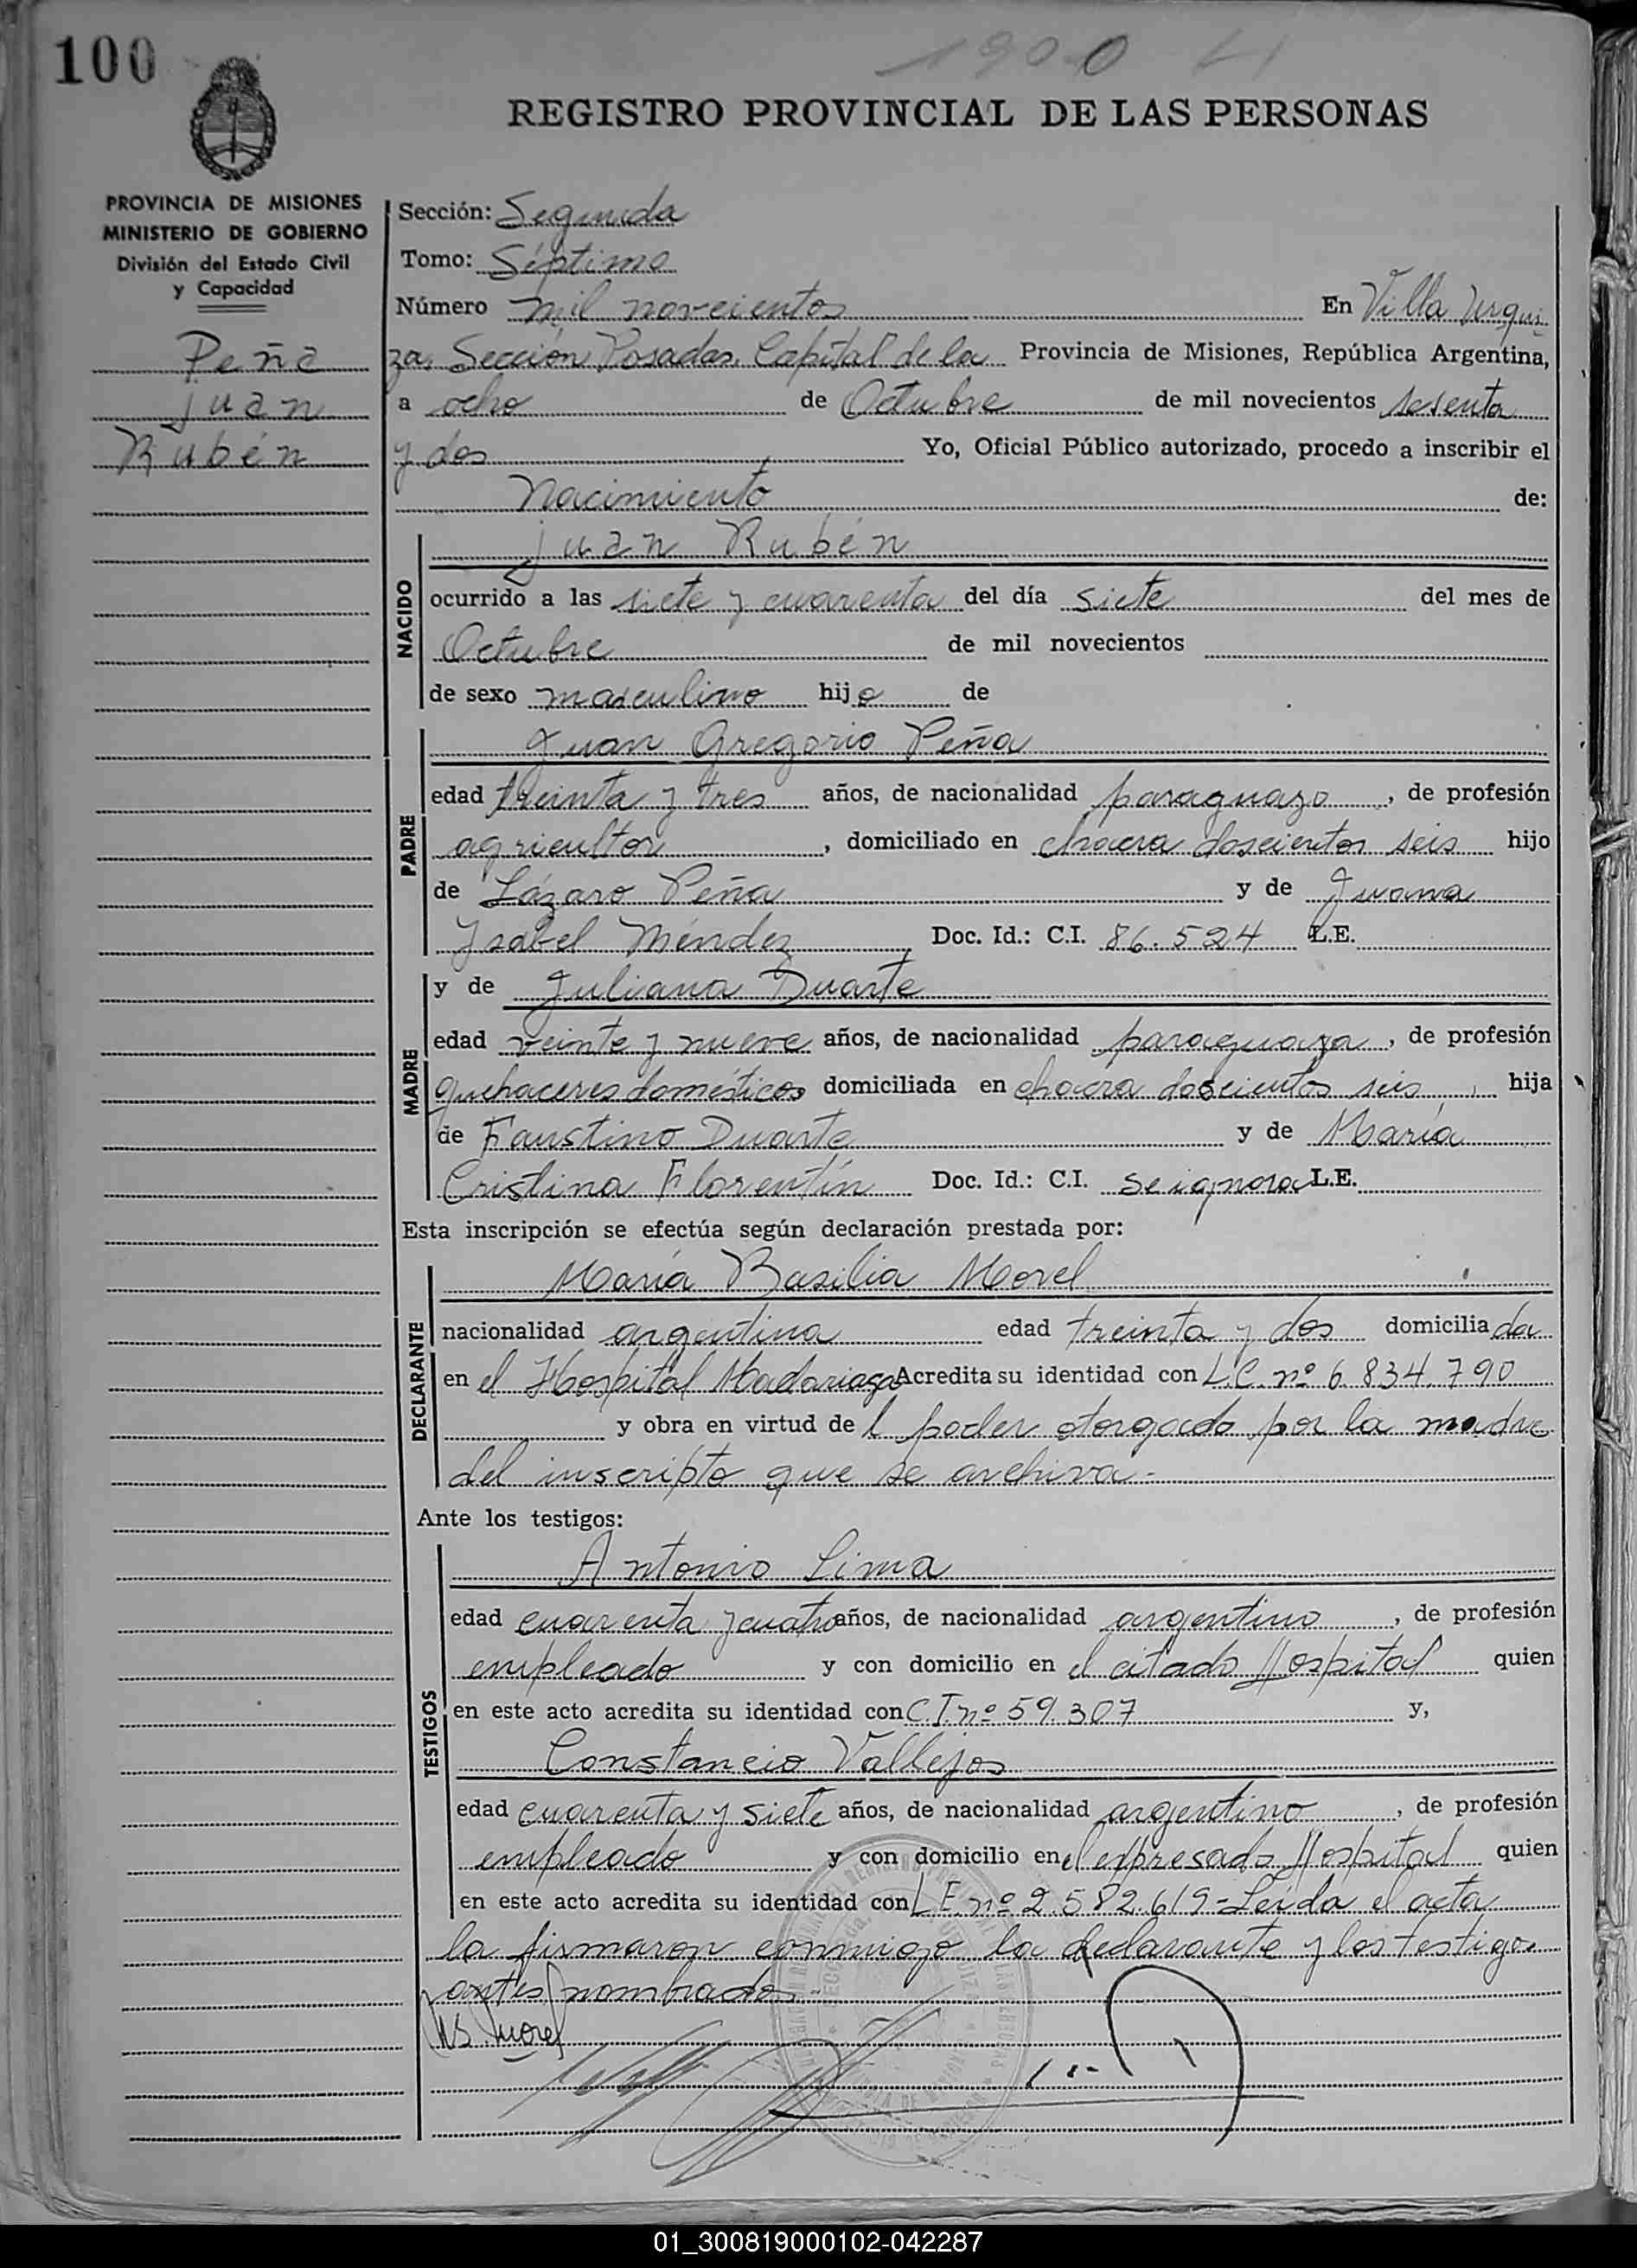 100
1900
REGISTRO PROVINCIAL DE LAS PERSONAS
PROVINCIA DE MISIONES
MINISTERIO DE GOBIERNO
División del Estado Civil
y Capacidad
Peña
Juan
Rubén
Sección: Segunda
Tomo: Séptimo
Número mil novecientos En Villa Urqui
za, Sección Posadas, Capital de la Provincia de Misiones, República Argentina,
a ocho de Octubre de mil novecientos sesenta
y dos Yo, Oficial Público autorizado, procedo a inscribir el
Nacimiento de:
NACIDO
Juan Rubén
ocurrido a las siete y cuarenta del día siete del mes de
Octubre de mil novecientos
de sexo masculino hijo de
PADRE
Juan Gregorio Peña
edad treinta y tres años, de nacionalidad paraguayo, de profesión
agricultor, domiciliado en chacra doscientos seis hijo
de Lázaro Peña y de Juana
Isabel Méndez Doc. Id.: C.I. 86.524 L.E.
MADRE
y de Juliana Duarte
edad veinte y nueve años, de nacionalidad paraguaya, de profesión
quehaceres domésticos domiciliada en chacra doscientos seis, hija
de Faustino Duarte y de María
Cristina Florentín Doc. Id.: C.I. se ignora L.E.
Esta inscripción se efectúa según declaración prestada por:
DECLARANTE
María Basilia Morel
nacionalidad argentina edad treinta y dos domiciliada
en el Hospital Madariaga Acredita su identidad con L.C. nº 6.834.790
y obra en virtud del poder otorgado por la madre
del inscripto que se archiva.-
Ante los testigos:
TESTIGOS
Antonio Lima
edad cuarenta y cuatro años, de nacionalidad argentino, de profesión
empleado y con domicilio en el citado Hospital quien
en este acto acredita su identidad con C.I. nº 59.307 y,
Constancio Vallejos
edad cuarenta y siete años, de nacionalidad argentino, de profesión
empleado y con domicilio en el expresado Hospital quien
en este acto acredita su identidad con L.E. nº 2.582.619- Leída el acta
la firmaron conmigo la declarante y los testigos
antes nombrados.-
M B. Morel
01_300819000102-042287